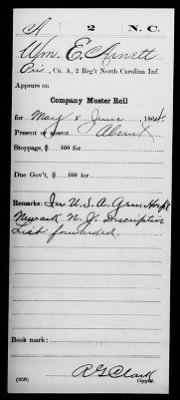 A 2 N. C.
Wm. E. Arnett
Pvt., Co. A, 2 Reg't North Carolina Inf.
Appears on
Company Muster Roll
for May & June, 1864.
Present or absent Absent
Stoppage, $ 100 for
Due Gov't, $ 100 for
Remarks: In U. S. A. Gen Hosp'l
Newark N. J. Descriptive
List forwarded.
Book mark:
R G Clark
(858) Copyist.